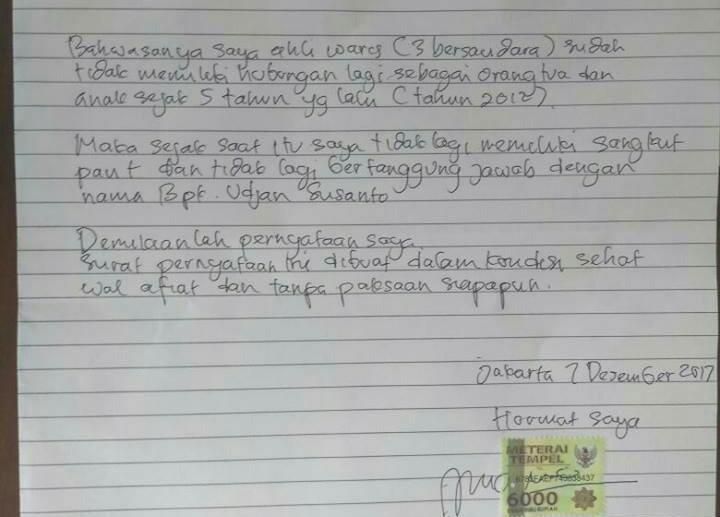 Bahwasanya saya ahli waris (3 bersaudara) sudah
tidak memiliki hubungan lagi sebagai orang tua dan
anak sejak 5 tahun yg lalu (tahun 2012).
Maka sejak saat itu saya tidak lagi memiliki sangkut
paut dan tidak lagi bertanggung jawab dengan
nama Bpk. Udjan Susanto
Demikaanlah pernyataan saya.
Surat pernyataan ini dibuat dalam kondisi sehat
wal afiat dan tanpa paksaan siapapun.
Jakarta 7 Dezember 2017
Hormat saya
METERAI
TEMPEL
6000